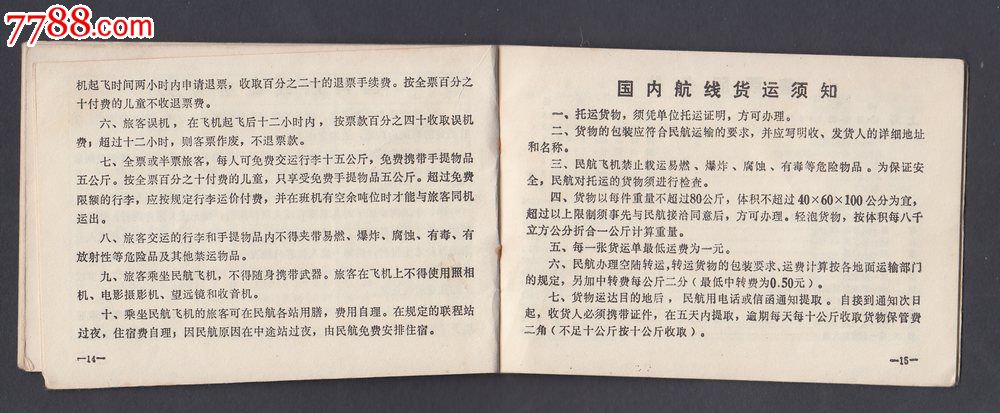 7788.com
机起飞时间两小时内申请退票，收取百分之二十的退票手续费。按全票百分之
十付费的儿童不收退票费。
六、旅客误机，在飞机起飞后十二小时内，按票款百分之四十收取误机
费；超过十二小时，则客票作废，不退票款。
七、全票或半票旅客，每人可免费交运行李十五公斤，免费携带手提物品
五公斤。按全票百分之十付费的儿童，只享受免费手提物品五公斤。超过免费
限额的行李，应按规定行李运价付费，并在班机有空余吨位时才能与旅客同机
运出。
八、旅客交运的行李和手提物品内不得夹带易燃、爆炸、腐蚀、有毒、有
放射性等危险品及其他禁运物品。
九、旅客乘坐民航飞机，不得随身携带武器。旅客在飞机上不得使用照相
机、电影摄影机、望远镜和收音机。
十、乘坐民航飞机的旅客可在民航各站用膳，费用自理。在规定的联程站
过夜，住宿费自理；因民航原因在中途站过夜，由民航免费安排住宿。
—14—
国内航线货运须知
一、托运货物，须凭单位托运证明，方可办理。
二、货物的包装应符合民航运输的要求，并应写明收、发货人的详细地址
和名称。
三、民航飞机禁止载运易燃、爆炸、腐蚀、有毒等危险物品。为保证安
全，民航对托运的货物须进行检查。
四、货物以每件重量不超过80公斤，体积不超过40×60×100公分为宜，
超过以上限制须事先与民航接洽同意后，方可办理。轻泡货物，按体积每八千
立方公分折合一公斤计算重量。
五、每一张货运单最低运费为一元。
六、民航办理空陆转运，转运货物的包装要求、运费计算按各地面运输部门
的规定，另加中转费每公斤二分（最低中转费为0.50元）。
七、货物运达目的地后，民航用电话或信函通知提取。自接到通知次日
起，收货人必须携带证件，在五天内提取，逾期每天每十公斤收取货物保管费
二角（不足十公斤按十公斤收取）。
—15—